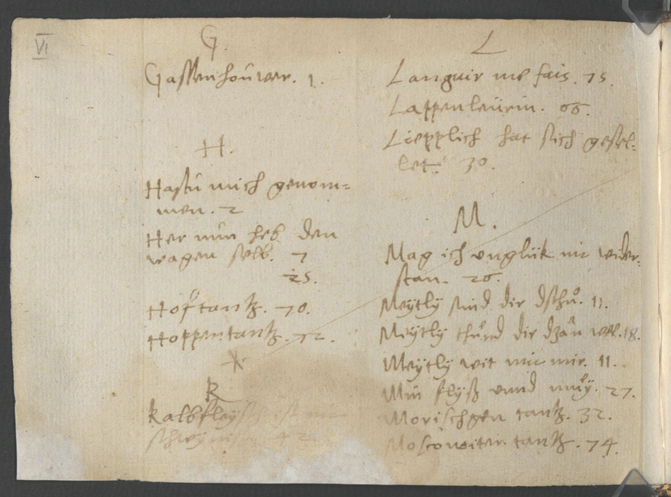 VI
G.
Gassenhouwer. 1.
H.
Hastu mich genom-
men. 2
Her nun heb den
wagen selb. 7
25.
Hoftantz. 70.
Hoppentantz. 72.
K
Kalbfleysch
L
Languir me fais. 75.
Lappenleürin. 66.
Liepplich hat sich gesel-
let. 30.
M.
Mag ich unglük nit wider-
stan. 26.
Meytly sind dir dschu. 11.
Meytly thünd dir
Meytly wit mit mir. 11.
Min flyß unnd müy. 27.
Morischgen tantz. 32.
Moscowiter tantz. 74.